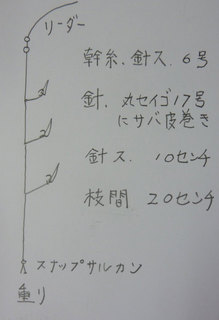 リーダー
幹糸、針ス、6号
針、丸セイゴ17号
にサバ皮巻き
針ス 10センチ
枝間 20センチ
スナップサルカン
重り